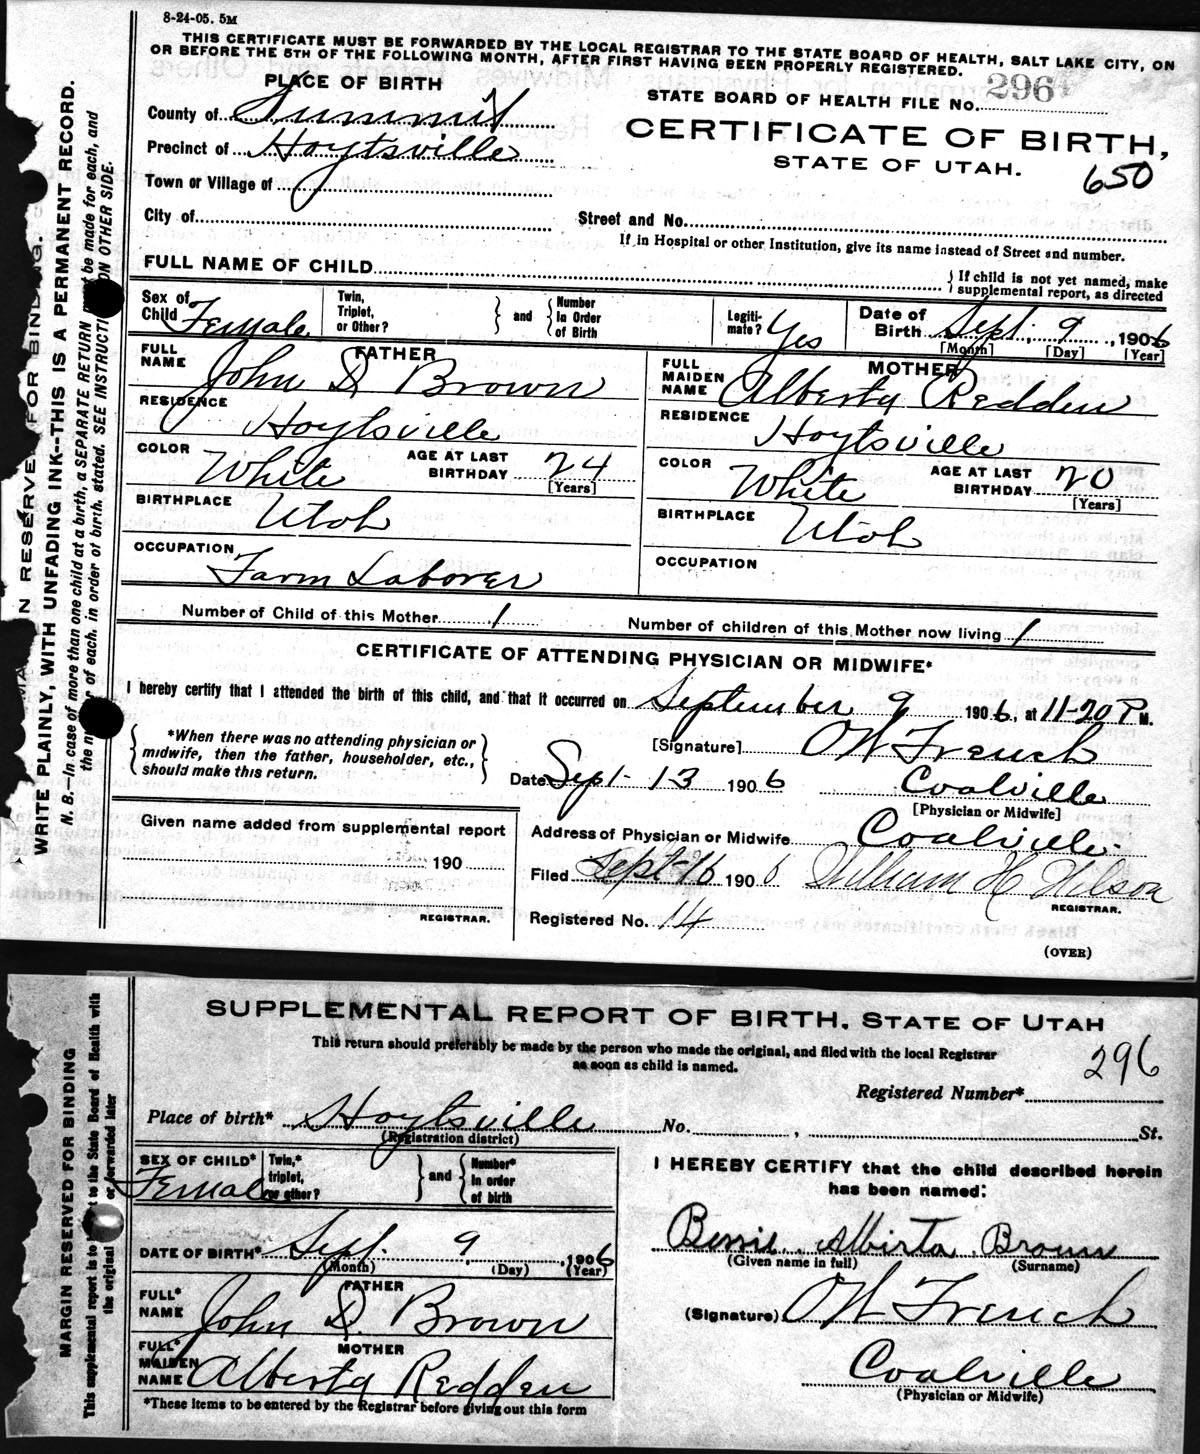 8-24-05. 5M
THIS CERTIFICATE MUST BE FORWARDED BY THE LOCAL REGISTRAR TO THE STATE BOARD OF HEALTH, SALT LAKE CITY, ON
OR BEFORE THE 5TH OF THE FOLLOWING MONTH, AFTER FIRST HAVING BEEN PROPERLY REGISTERED.
PLACE OF BIRTH
STATE BOARD OF HEALTH FILE No. 296
County of Summit
CERTIFICATE OF BIRTH,
Precinct of Hoytsville
STATE OF UTAH.
650
Town or Village of
City of
Street and No.
If in Hospital or other Institution, give its name instead of Street and number.
FULL NAME OF CHILD
If child is not yet named, make
supplemental report, as directed
Sex of Child Female
Twin, Triplet, or Other?
and
Number In Order of Birth
Legiti-mate? Yes
Date of Birth Sept. 9, 1906
[Month] [Day] [Year]
FATHER
FULL NAME John D. Brown
RESIDENCE Hoytsville
COLOR White AGE AT LAST BIRTHDAY 24
[Years]
BIRTHPLACE Utah
OCCUPATION Farm Laborer
MOTHER
FULL MAIDEN NAME Alberta Redden
RESIDENCE Hoytsville
COLOR White AGE AT LAST BIRTHDAY 20
[Years]
BIRTHPLACE Utah
OCCUPATION
Number of Child of this Mother 1
Number of children of this Mother now living 1
CERTIFICATE OF ATTENDING PHYSICIAN OR MIDWIFE*
I hereby certify that I attended the birth of this child, and that it occurred on September 9 1906, at 11-20 P M.
*When there was no attending physician or
midwife, then the father, householder, etc.,
should make this return.
[Signature] O W French
Date Sept- 13 1906 Coalville
[Physician or Midwife]
Given name added from supplemental report
190
REGISTRAR.
Address of Physician or Midwife Coalville
Filed Sept-16 1906 William H Wilson
REGISTRAR.
Registered No. 114
(OVER)
N RESERVE FOR BINDING.
WRITE PLAINLY, WITH UNFADING INK--THIS IS A PERMANENT RECORD.
N. B.—In case of more than one child at a birth, a SEPARATE RETURN must be made for each, and
the number of each, in order of birth, stated. SEE INSTRUCTIONS ON OTHER SIDE.
SUPPLEMENTAL REPORT OF BIRTH. STATE OF UTAH
This return should preferably be made by the person who made the original, and filed with the local Registrar
as soon as child is named.
296
Registered Number*
Place of birth* Hoytsville No. , St.
(Registration district)
SEX OF CHILD* Female
Twin,* triplet, or other?
and
Number* In order of birth
DATE OF BIRTH* Sept. 9, 1906
(Month) (Day) (Year)
FATHER
FULL* NAME John D. Brown
MOTHER
FULL* MAIDEN NAME Alberta Redden
*These items to be entered by the Registrar before giving out this form
I HEREBY CERTIFY that the child described herein
has been named:
Bessie Alberta Brown
(Given name in full) (Surname)
(Signature) O W French
Coalville
(Physician or Midwife)
MARGIN RESERVED FOR BINDING
This supplemental report is to to the State Board of Health with
the original or forwarded later